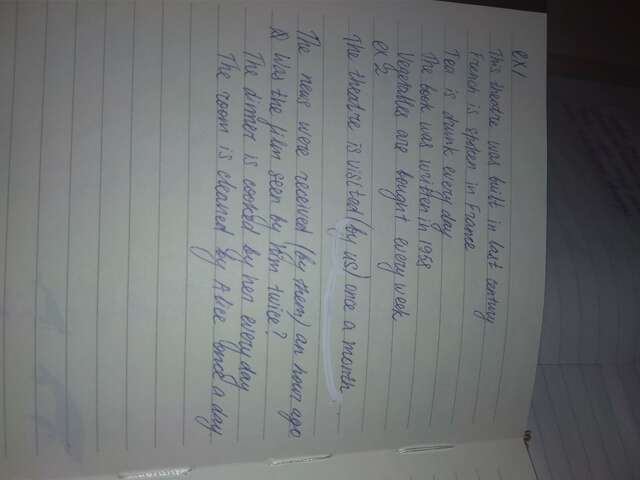 ex1
This theatre was built in last century
French is spoken in France
Tea is drunk every day
The book was written in 1958
Vegetables are bought every week
ex 2
The theatre is visited (by us) once a month
The news were received (by them) an hour ago
Was the film seen by him twice?
The dinner is cooked by her every day
The room is cleaned by Alice once a day.